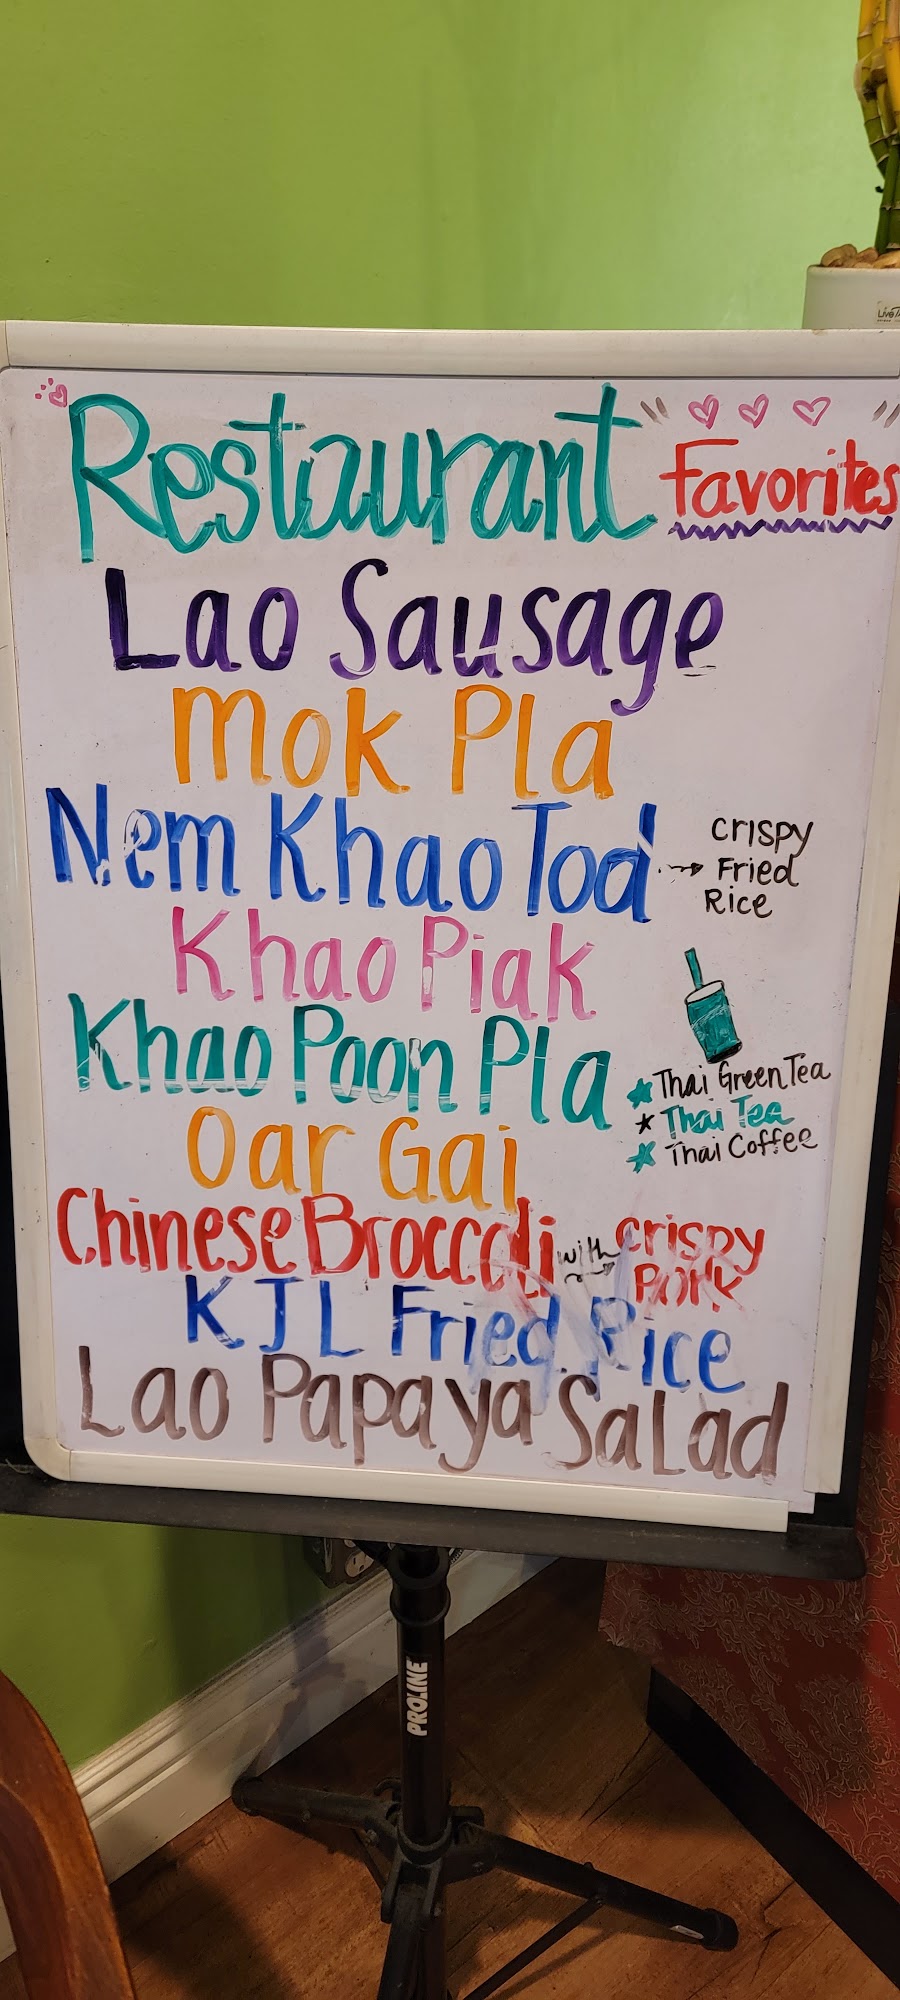 Restaurant Favorites
Lao Sausage
Mok Pla
Nem Khao Tod → Crispy
Fried
Rice
Khao Piak
Khao Poon Pla
Thai Green Tea
Thai Tea
Thai Coffee
Oar Gai
Chinese Broccoli with Crispy
Pork
KJL Fried Rice
Lao Papaya Salad
PROLINE